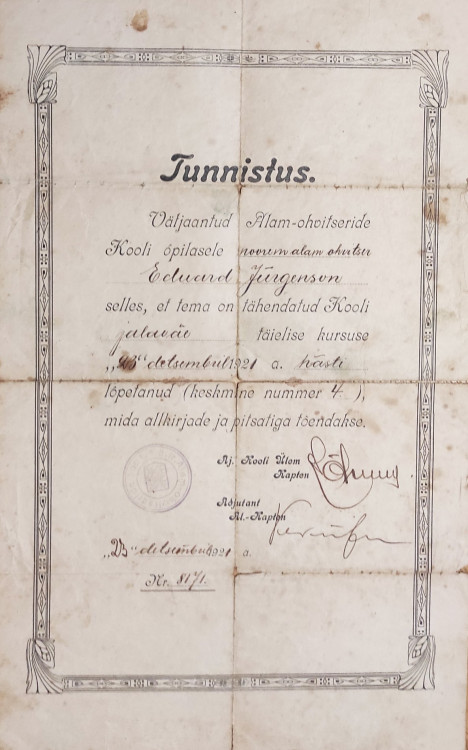 Tunnistus.
Väljaantud Alam-ohvitseride
Kooli õpilasele noorem alam ohvitser
Eduard Jürgenson
selles, et tema on tähendatud Kooli
jalaväe täielise kursuse
„23“ detsembril 1921 a. hästi
lõpetanud (keskmine nummer 4),
mida allkirjade ja pitsatiga tõendakse.
Aj. Kooli Ülem
Kapten
Adjutant
Al.-Kapten
„23“ detsembril 1921 a.
Nr. 8171.